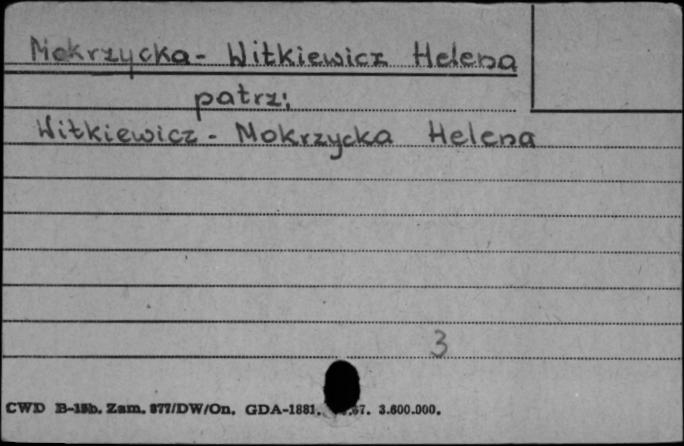 Mokrzycka - Witkiewicz Helena
patrz:
Witkiewicz - Mokrzycka Helena
3
CWD B-15b. Zam. 877/DW/On. GDA-1881. 67. 3.600.000.